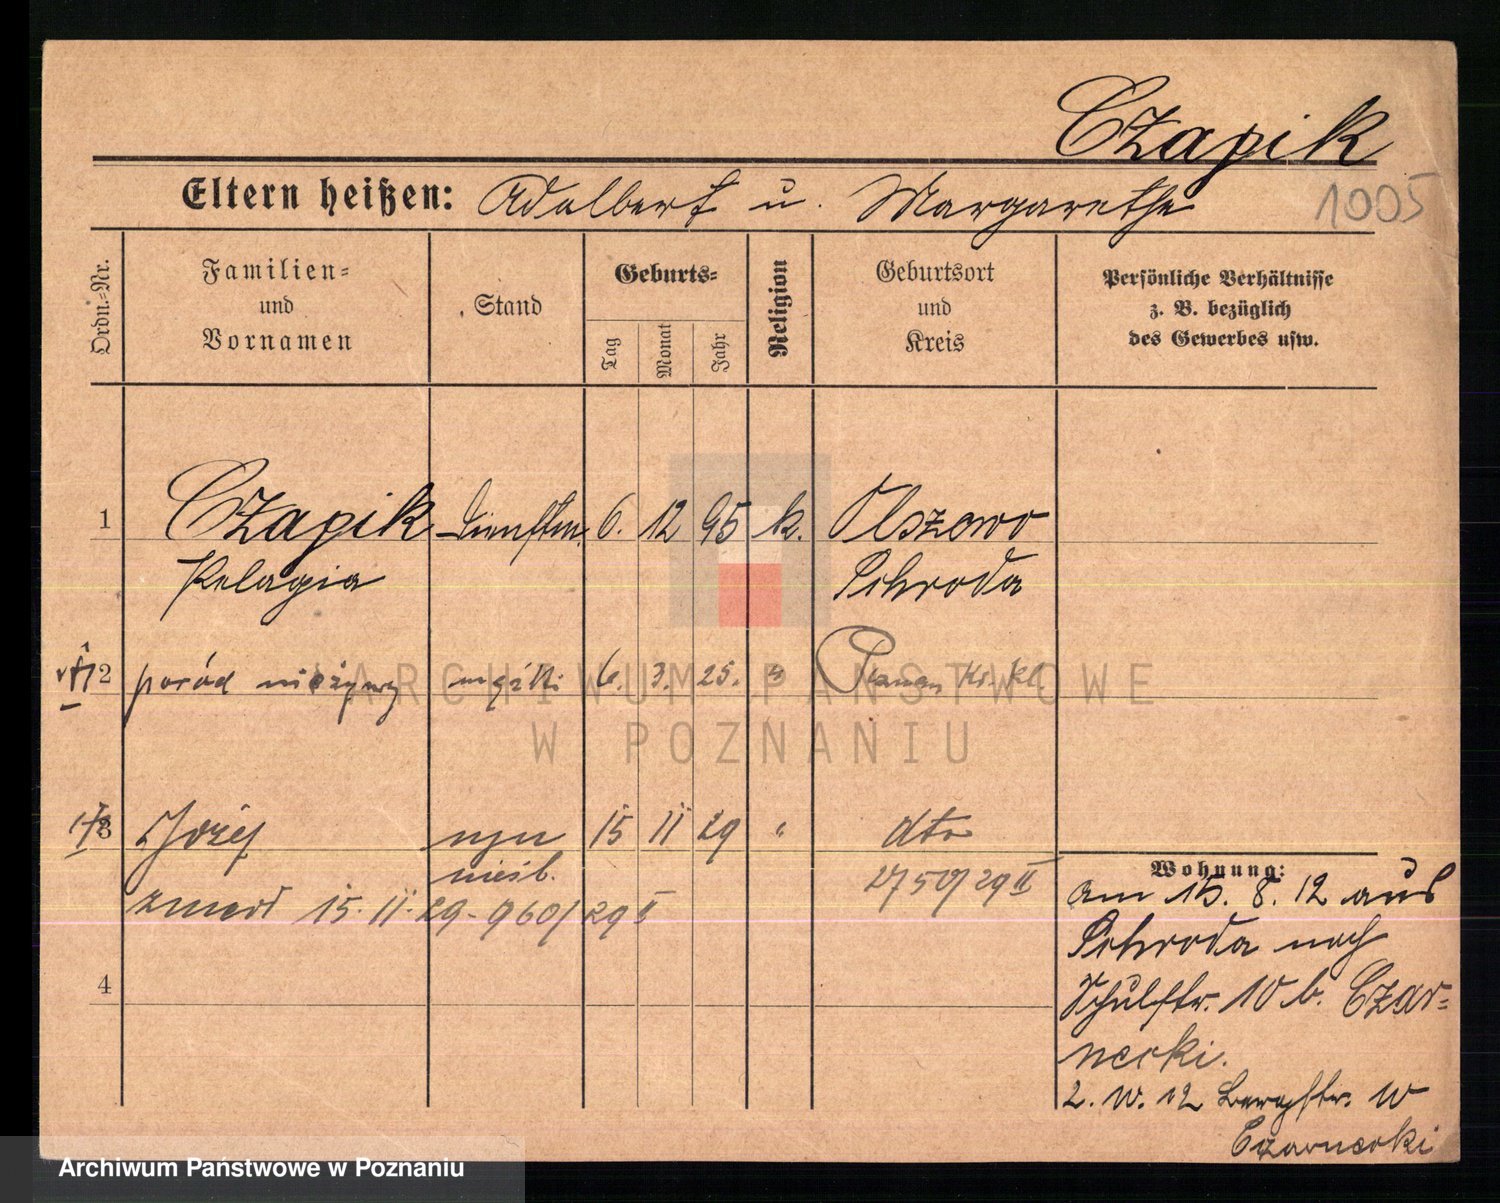 Czapik
Eltern heißen: Adalbert u. Margarethe
1005
Ordn.-Nr.
Familien-
und
Vornamen
Stand
Geburts-
Tag
Monat
Jahr
Religion
Geburtsort
und
Kreis
Persönliche Verhältnisse
z. B. bezüglich
des Gewerbes usw.
1 Czapik Dienstm. 6. 12 95 k. Olszewo
Pelagia Schroda
2 poród nieżywy 6. 3. 25. "
3 Józef 15 II 29 " dto
nieśl. 2750/29 II
zmarł 15. II. 29 - 960/29 II
4
Wohnung:
am 15. 8. 12 aus
Schroda nach
Schulstr. 10 b. Czar-
necki.
2. 10. 12 Bergstr. 10
Czarnecki
ARCHIWUM PAŃSTWOWE
W POZNANIU
Archiwum Państwowe w Poznaniu